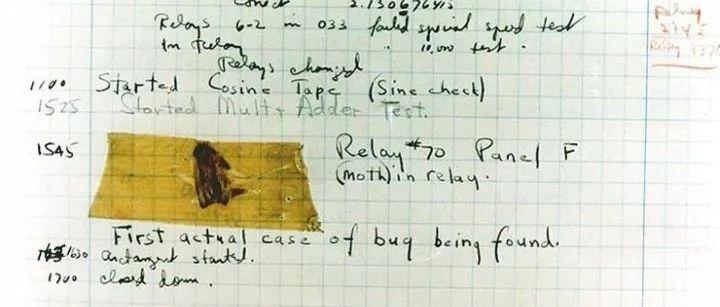 2.130676415
Relays 6-2 in 033 failed special speed test
in relay " 10.000 test.
Relays changed
1100 Started Cosine Tape (Sine check)
1525 Started Mult + Adder Test.
1545 Relay #70 Panel F
(moth) in relay.
First actual case of bug being found.
1630 arctangent started.
1700 closed down.
Relay
2145
Relay 3370